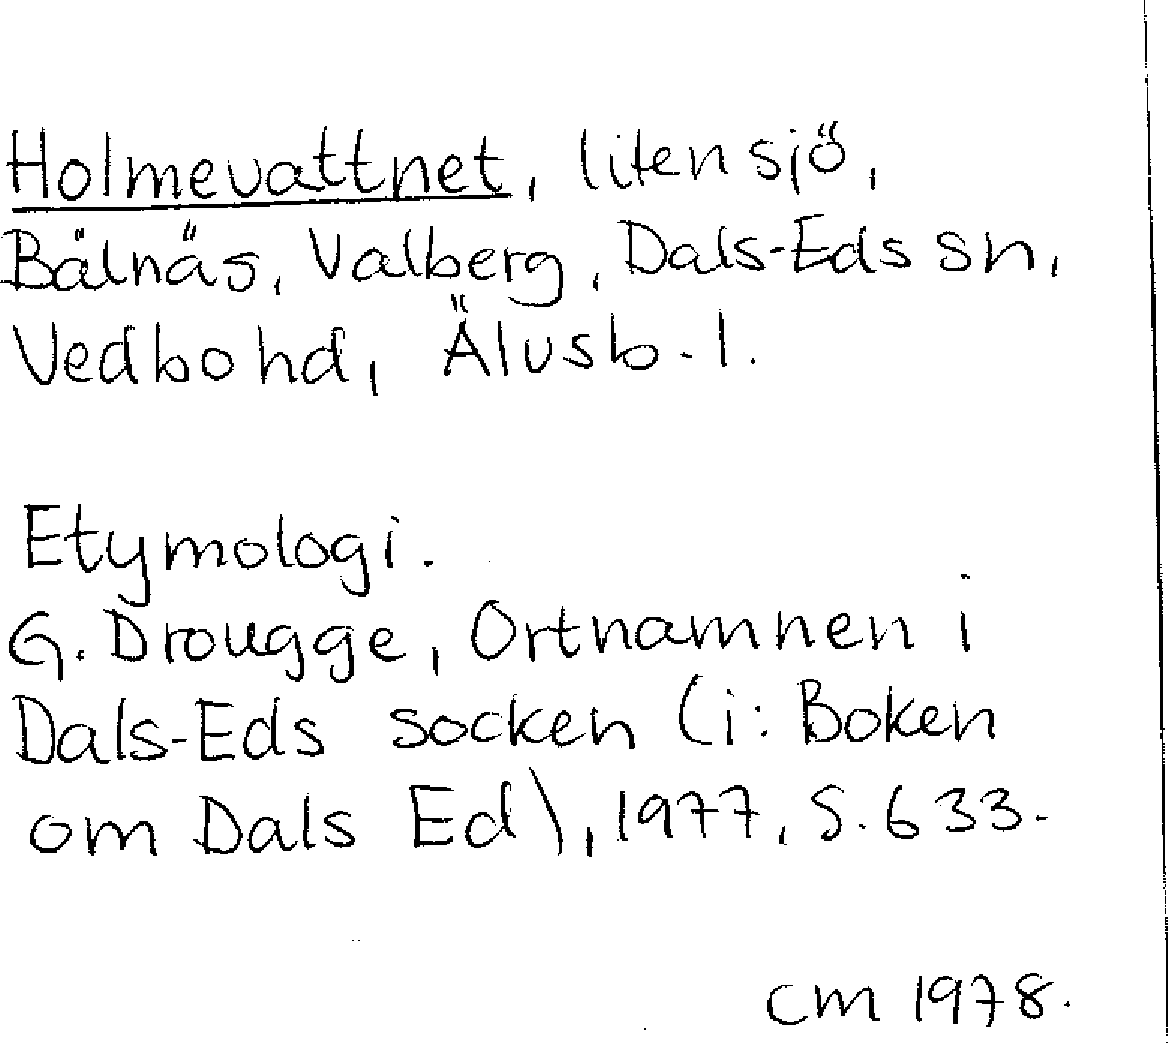 Holmevattnet, liten sjö,
Bälnäs, Valberg, Dals-Eds sn,
Vedbo hd, Älvsb. l.
Etymologi.
G. Drougge, Ortnamnen i
Dals-Eds socken (i: Boken
om Dals Ed), 1977, S. 633.
CM 1978.